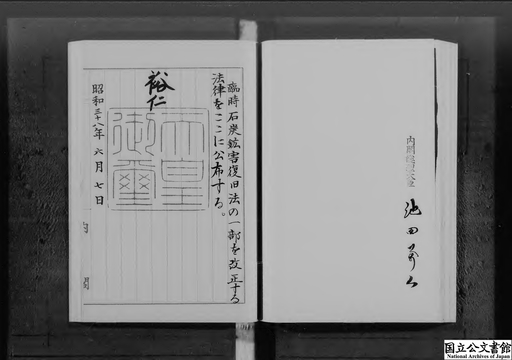 内閣総理大臣
池田勇人
臨時石炭鉱害復旧法の一部を改正する
法律をここに公布する。
裕仁
天皇
御璽
昭和三十八年六月七日
国立公文書館
National Archives of Japan